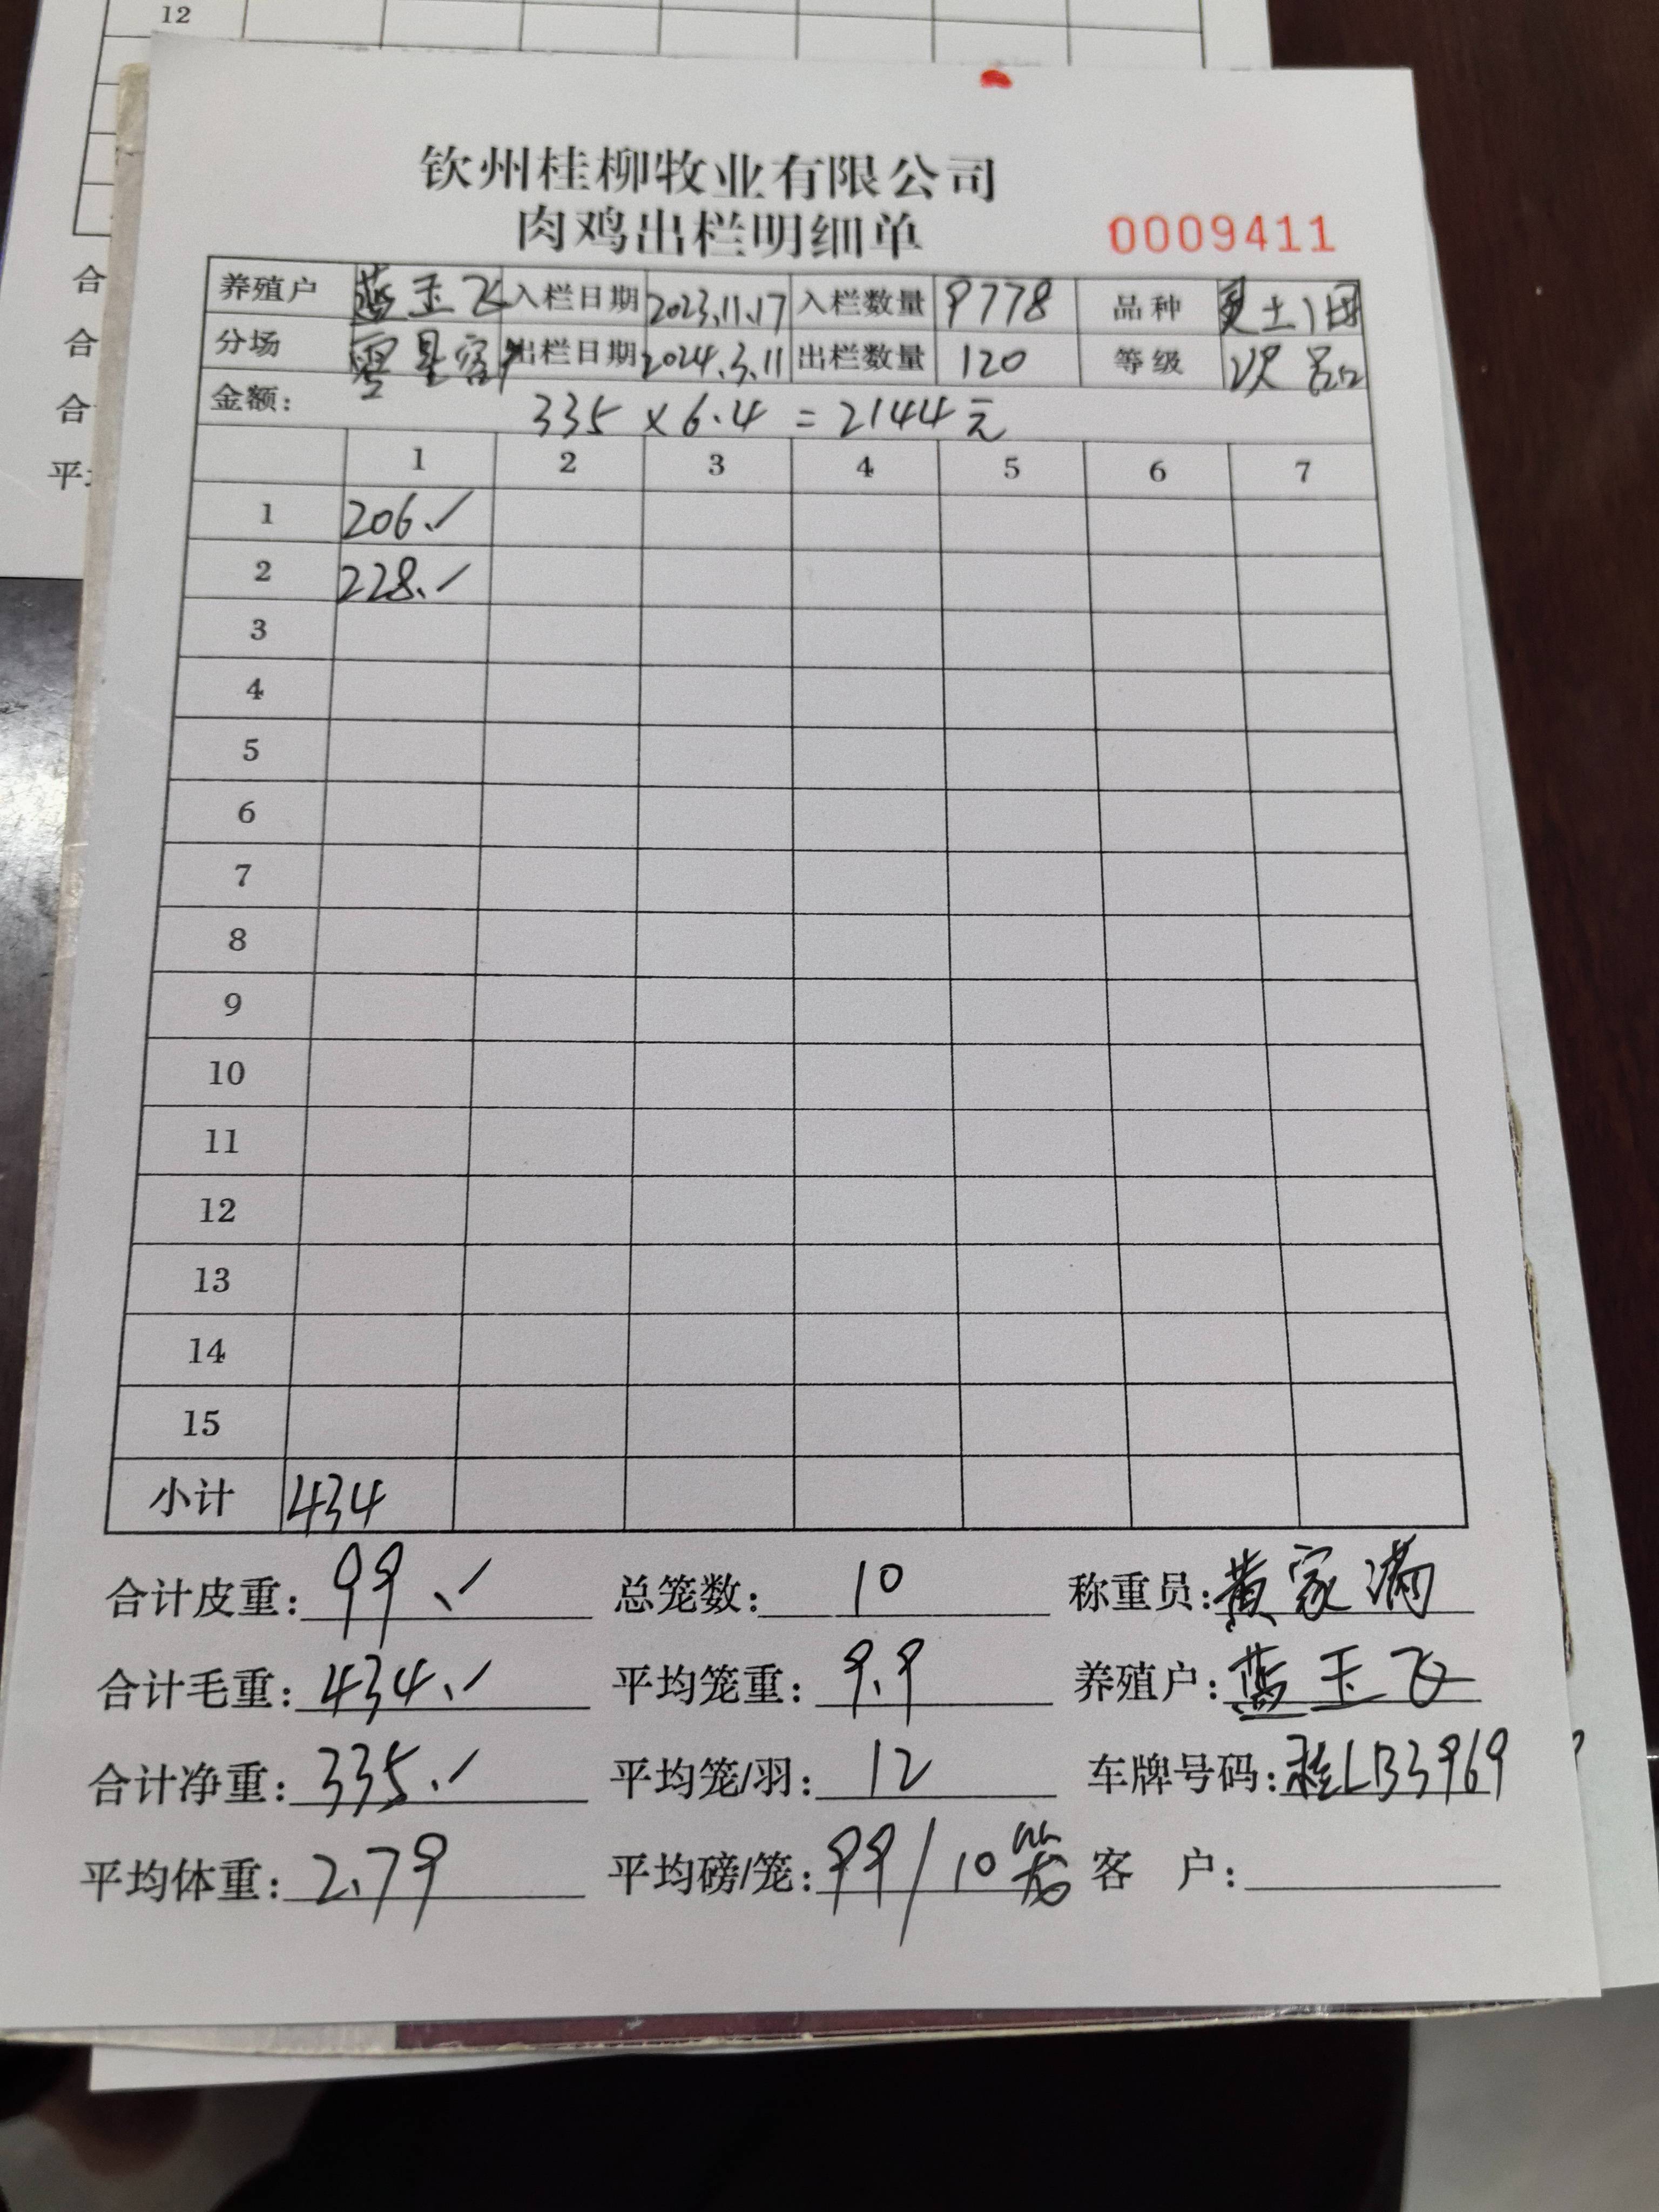 12
钦州桂柳牧业有限公司
肉鸡出栏明细单
0009411
养殖户 蓝玉飞 入栏日期 2023.11.17 入栏数量 9778 品种 土
分场 零星客户 出栏日期 2024.3.11 出栏数量 120 等级 次品
金额: 335 × 6.4 = 2144元
1 2 3 4 5 6 7
1 206.✓
2 228.✓
3
4
5
6
7
8
9
10
11
12
13
14
15
小计 434
合计皮重: 99.✓ 总笼数: 10 称重员: 黄家满
合计毛重: 434.✓ 平均笼重: 9.9 养殖户: 蓝玉飞
合计净重: 335.✓ 平均笼/羽: 12 车牌号码: 桂LB3969
平均体重: 2.79 平均磅/笼: 99/10笼 客 户:
合
合
合
平